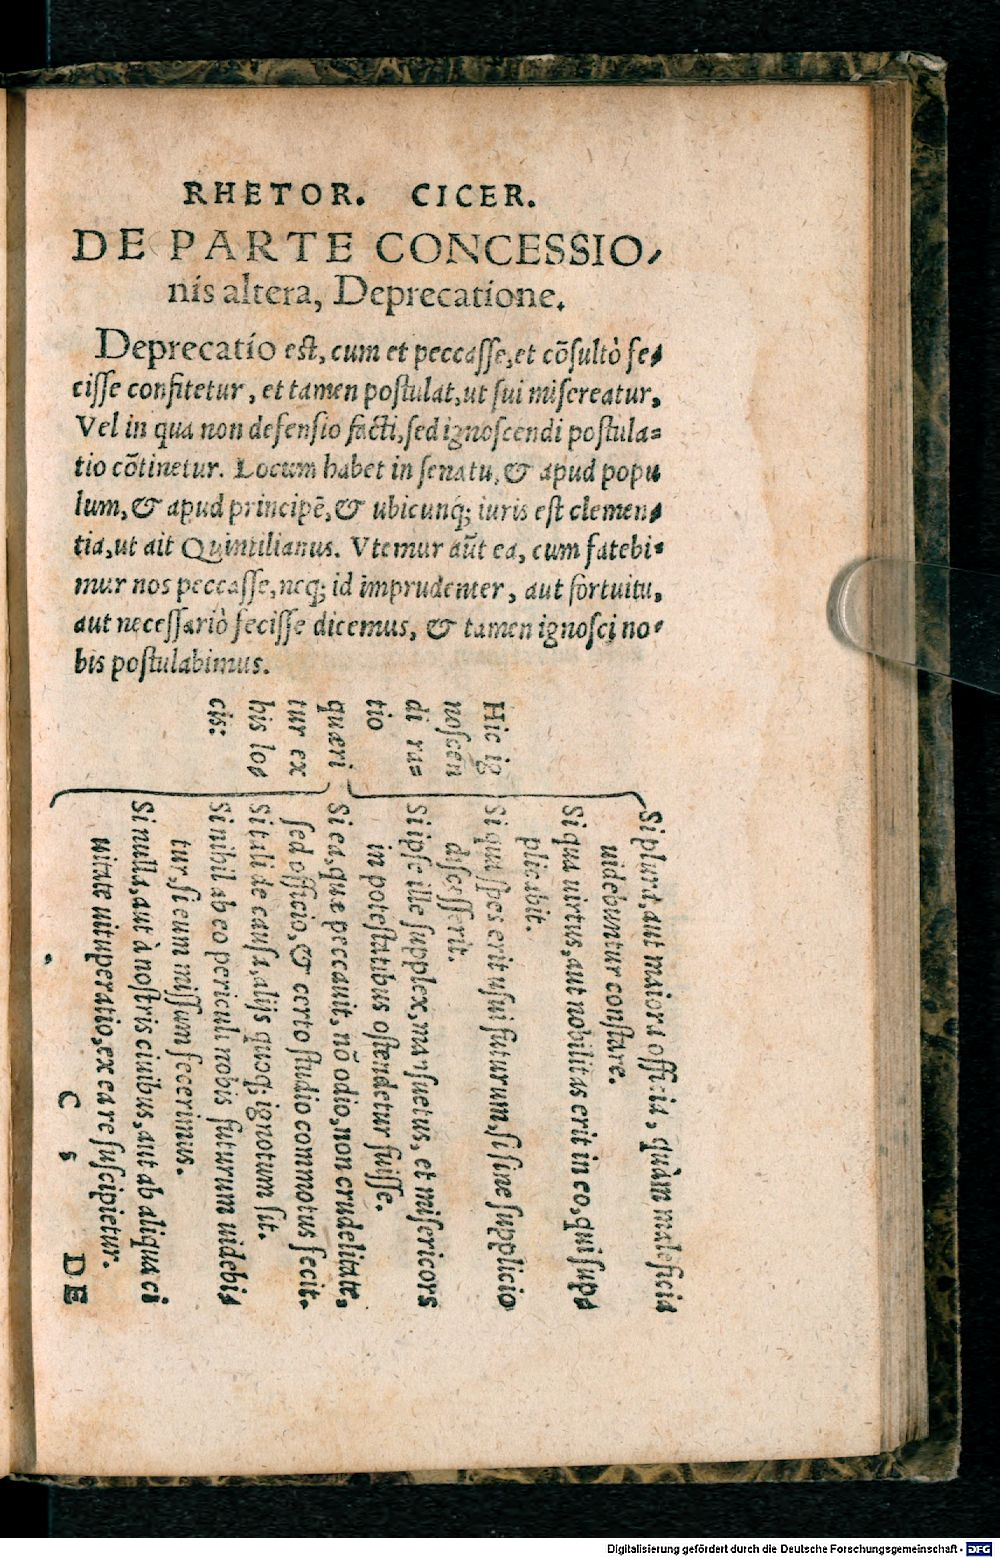 RHETOR. CICER.
DE PARTE CONCESSIO,
nis altera, Deprecatione.
Deprecatio est, cum et peccasse, et cõsultò fe-
cisse confitetur, et tamen postulat, ut sui misereatur,
Vel in qua non defensio facti, sed ignoscendi postula=
tio cõtinetur. Locum habet in senatu, & apud popu
lum, & apud principẽ, & ubicunq; iuris est clemen-
tia, ut ait Quintilianus. Vtemur aũt ea, cum fatebi-
mur nos peccasse, neq; id imprudenter, aut fortuitu,
aut necessariò fecisse dicemus, & tamen ignosci no-
bis postulabimus.
Hic ig
noscen
di ra=
tio
quæri
tur ex
his lo-
cis:
Si plura, aut maiora officia, quàm maleficia
uidebuntur constare.
Si qua uirtus, aut nobilitas erit in eo, qui sup-
plicabit.
Si qua spes erit usui futurum, si sine supplicio
discesserit.
Si ipse ille supplex, mansuetus, et misericors
in potestatibus ostendetur fuisse.
Si ea, quæ peccauit, nõ odio, non crudelitate,
sed officio, & certo studio commotus fecit.
Si tali de causa, alijs quoq; ignotum sit.
Si nihil ab eo periculi nobis futurum uidebi-
tur, si eum missum fecerimus.
Si nulla, aut à nostris ciuibus, aut ab aliqua ci
uitate uituperatio, ex ea re suscipietur.
C 5 DE
Digitalisierung gefördert durch die Deutsche Forschungsgemeinschaft - DFG